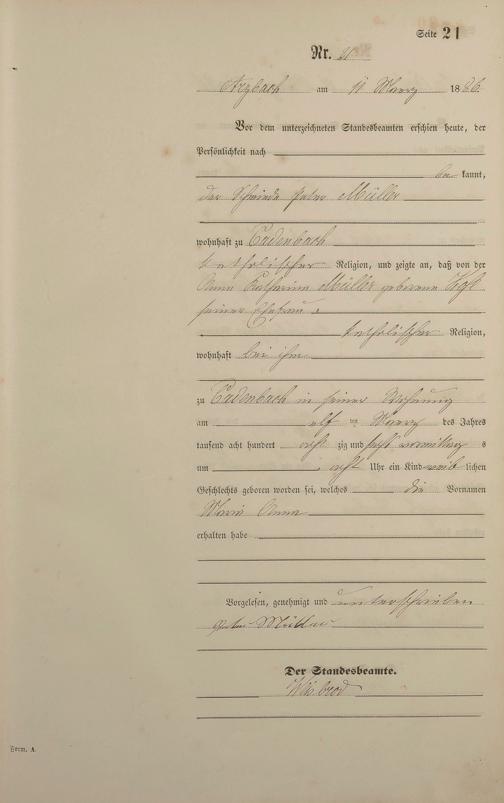 Seite 21
Nr. 21
Arzbach am 11 Maerz 1886.
Vor dem unterzeichneten Standesbeamten erschien heute, der
Persönlichkeit nach
be kannt,
der Schmiede Peter Müller
wohnhaft zu Cadenbach
katholischer Religion, und zeigte an, daß von der
Anna Katharina Müller geborene
seiner Ehefrau,
katholischer Religion,
wohnhaft bei ihm
zu Cadenbach in seiner Wohnung
am elf ten Maerz des Jahres
tausend acht hundert acht zig und sechs vormittag s
um acht Uhr ein Kind weib lichen
Geschlechts geboren worden sei, welches die Vornamen
Maria Anna
erhalten habe
Vorgelesen, genehmigt und unterschrieben
Peter Müller
Der Standesbeamte.
Form. A.